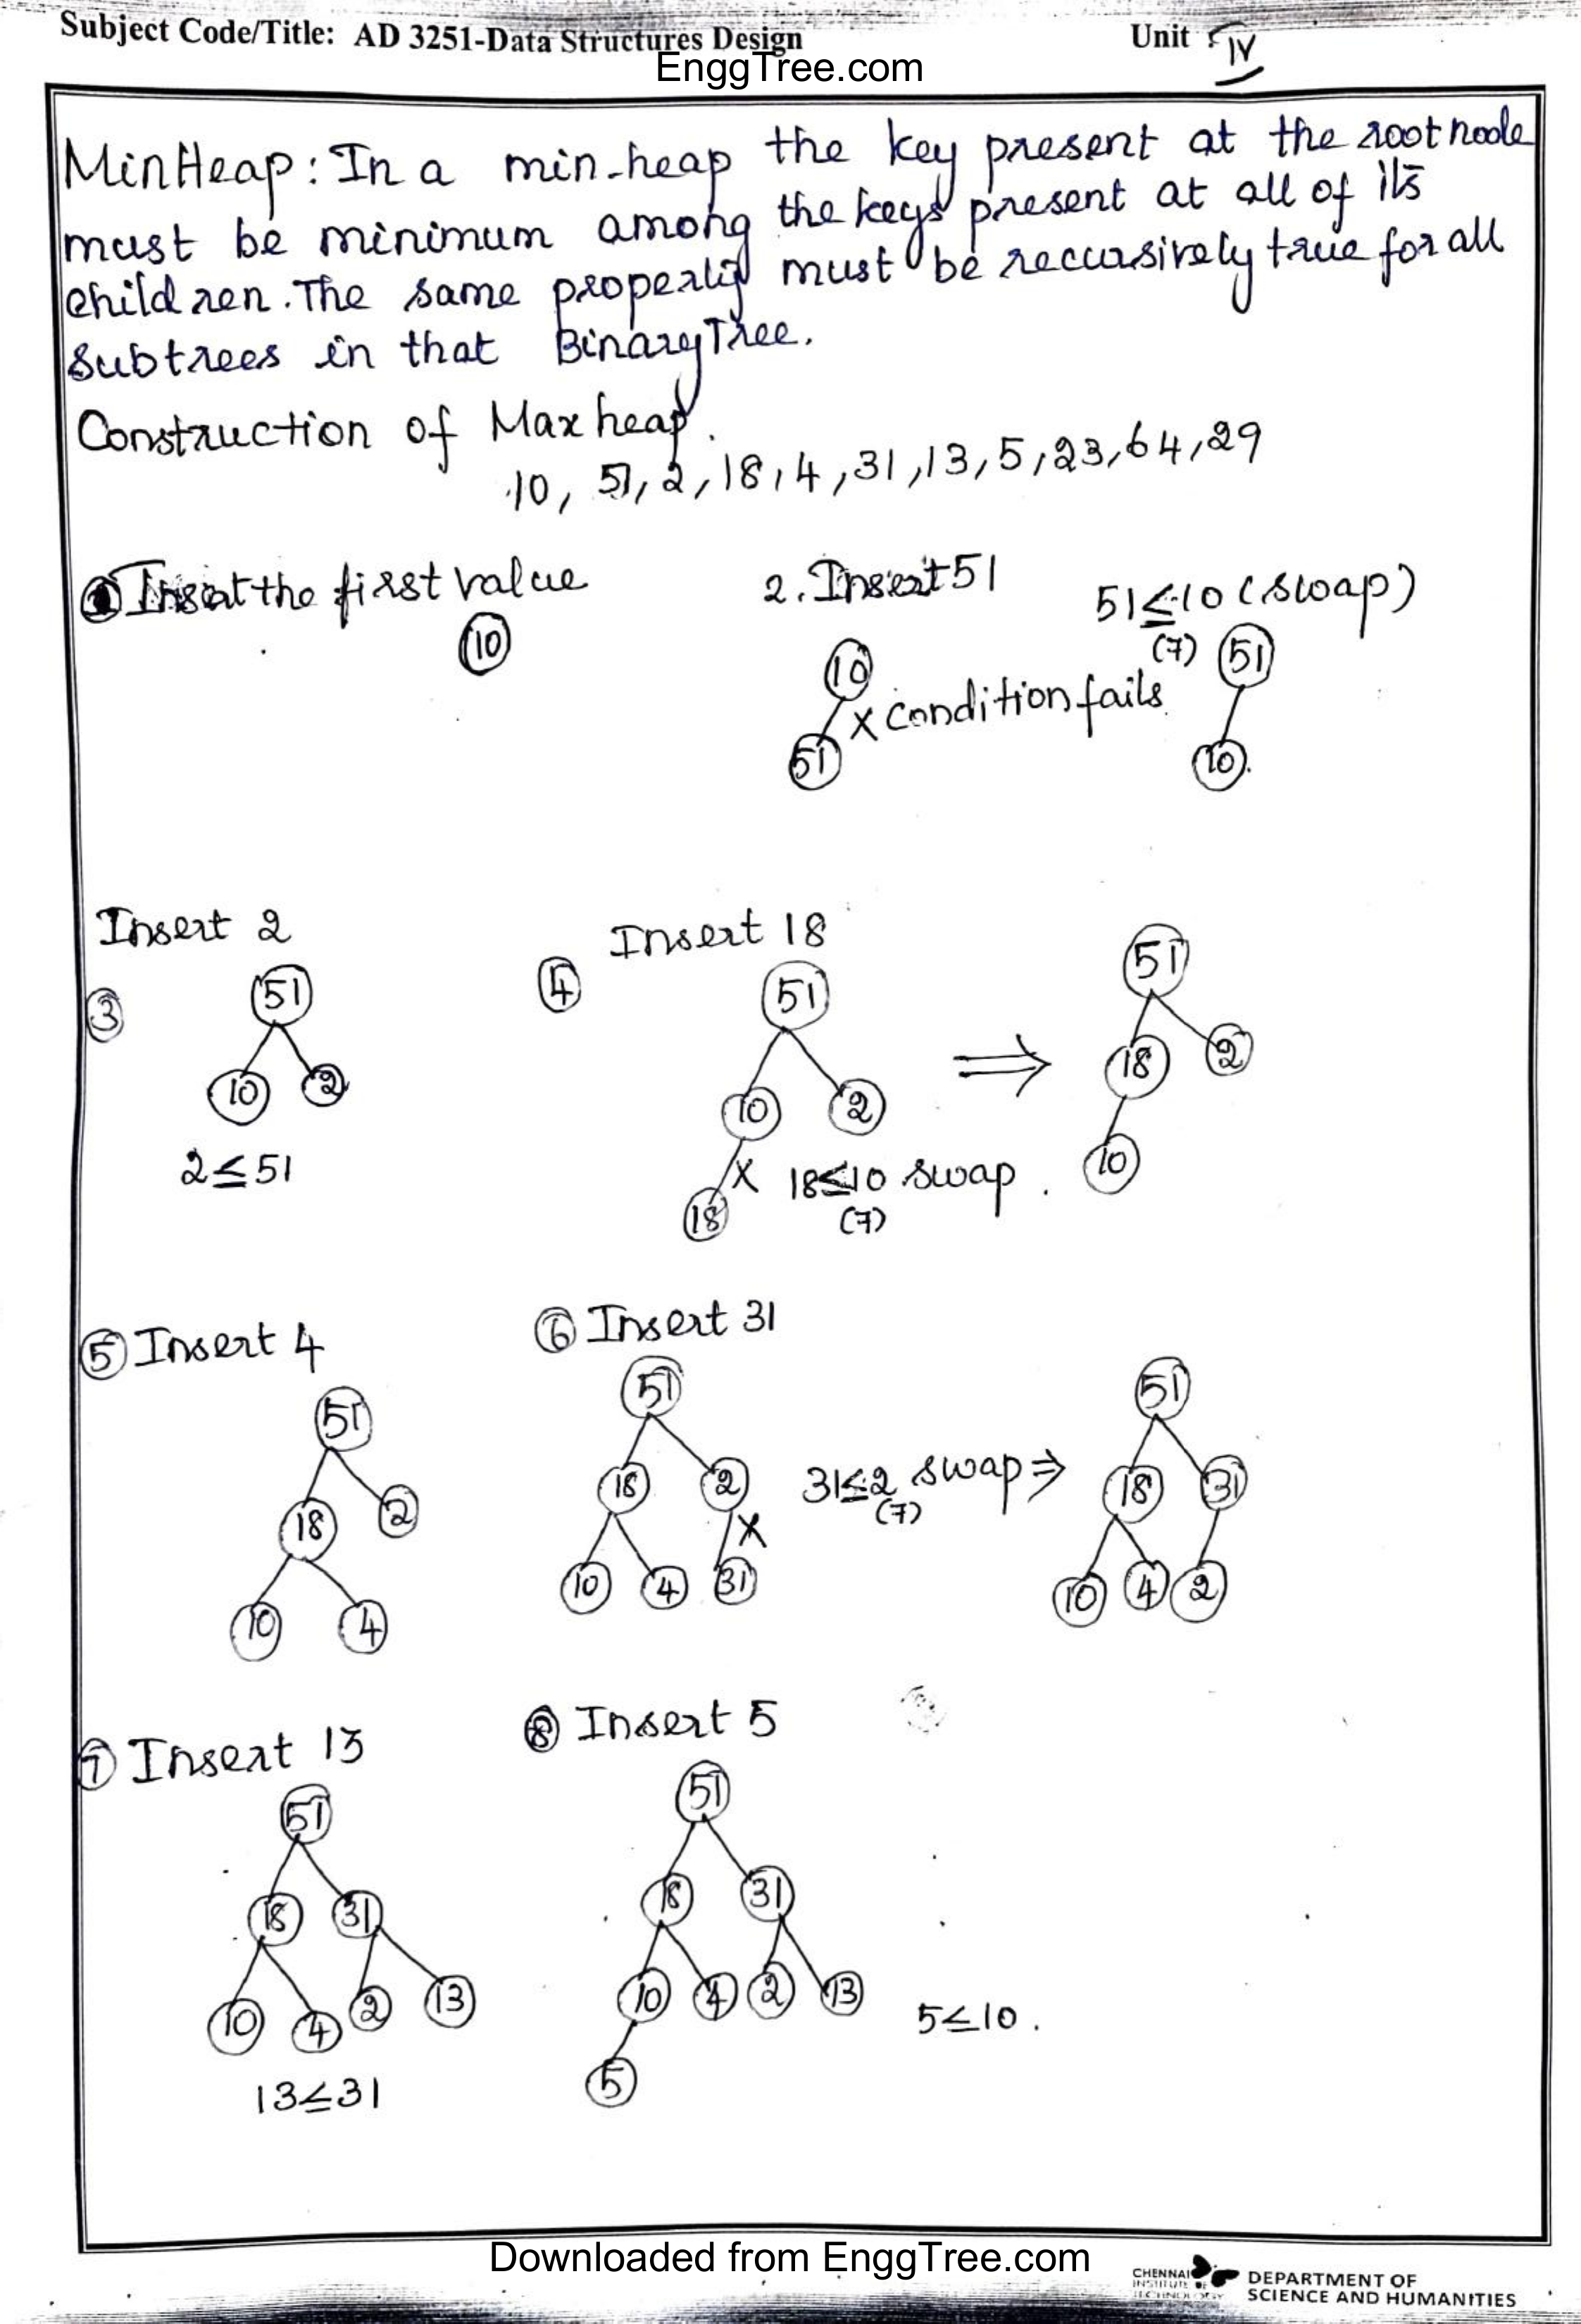 Subject Code/Title: AD 3251-Data Structures Design
Unit IV
EnggTree.com
MinHeap: In a min-heap the key present at the rootnode
must be minimum among the keys present at all of its
children. The same property must be recursively true for all
subtrees in that BinaryTree.
Construction of Maxheap.
10, 51, 2, 18, 4, 31, 13, 5, 23, 64, 29
Insert the first value
10
2. Insert 51
51≤10 (swap)
(7)
10
x condition fails
51
51
10.
Insert 2
3
51
10 2
2≤51
4
Insert 18
51
10 2
x
18
18≤10 swap.
(7)
⇒
51
18 2
10
5 Insert 4
51
18 2
10 4
6 Insert 31
51
18 2
x
10 4 31
31≤2 swap ⇒
(7)
51
18 31
10 4 2
7 Insert 13
51
18 31
10 4 2 13
13≤31
8 Insert 5
51
18 31
10 4 2 13
5
5≤10.
Downloaded from EnggTree.com
CHENNAI
INSTITUTE OF
TECHNOLOGY
DEPARTMENT OF
SCIENCE AND HUMANITIES